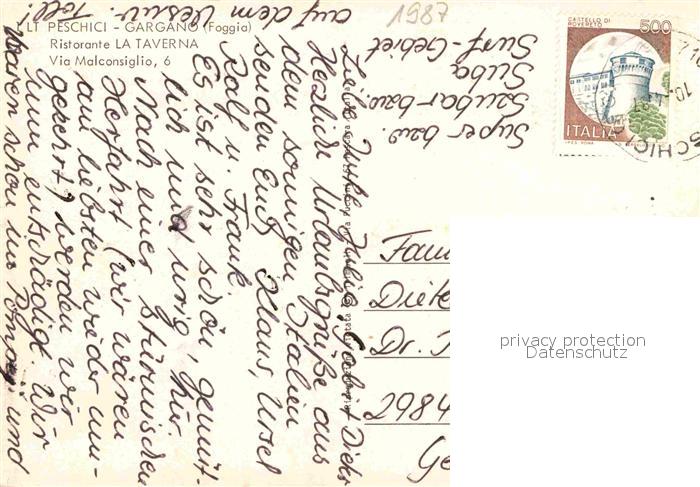 LT PESCHICI - GARGANO (Foggia)
Ristorante LA TAVERNA
Via Malconsiglio, 6
1987
CASTELLO DI
ROVERETO
500
ITALIA
Liebe Jutta, Julia, Gabi + Dieter
Herzliche Urlaubsgrüße aus
dem sonnigen Italien
senden Euch Klaus, Ursel
Ralf u. Frank
Es ist sehr schön, gemüt-
lich und urig hier.
Nach einer stürmischen
Herfahrt (wir wären
am liebsten wieder um-
gekehrt) werden wir
nun entschädigt. Wir
waren schon in Pompeji und
auf dem Vesuv. Toll!
Super bzw.
Szubar bzw.
Suba
Surf-Gebiet
Fam
Diete
Dr.
2984
Ge
privacy protection
Datenschutz